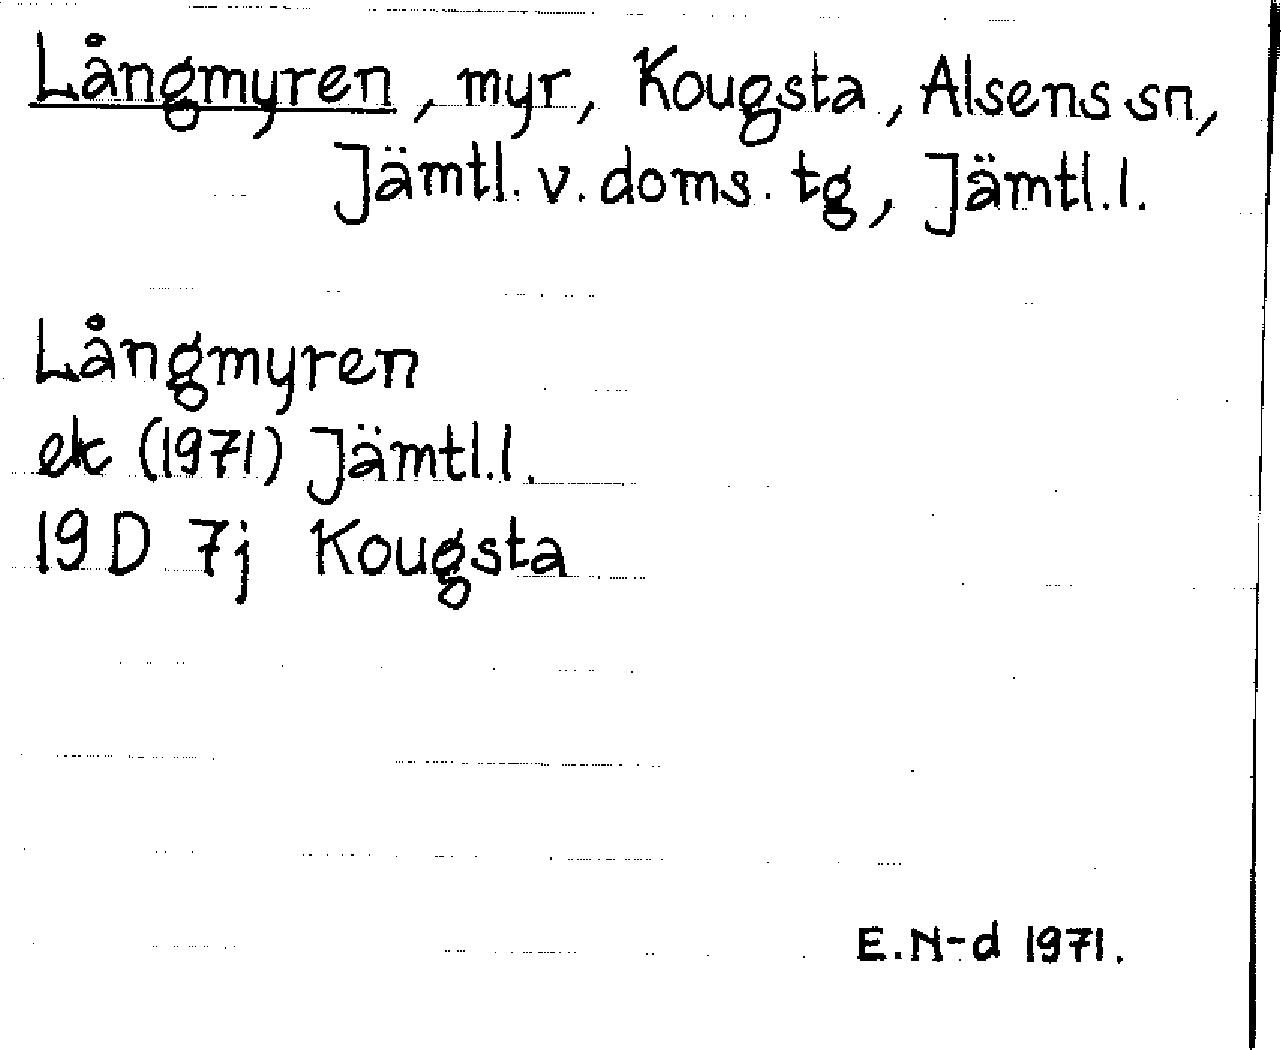 Långmyren, myr, Kougsta, Alsens sn,
Jämtl. v. doms. tg, Jämtl.l.
Långmyren
ek (1971) Jämtl.l.
19 D 7j Kougsta
E.N-d 1971.